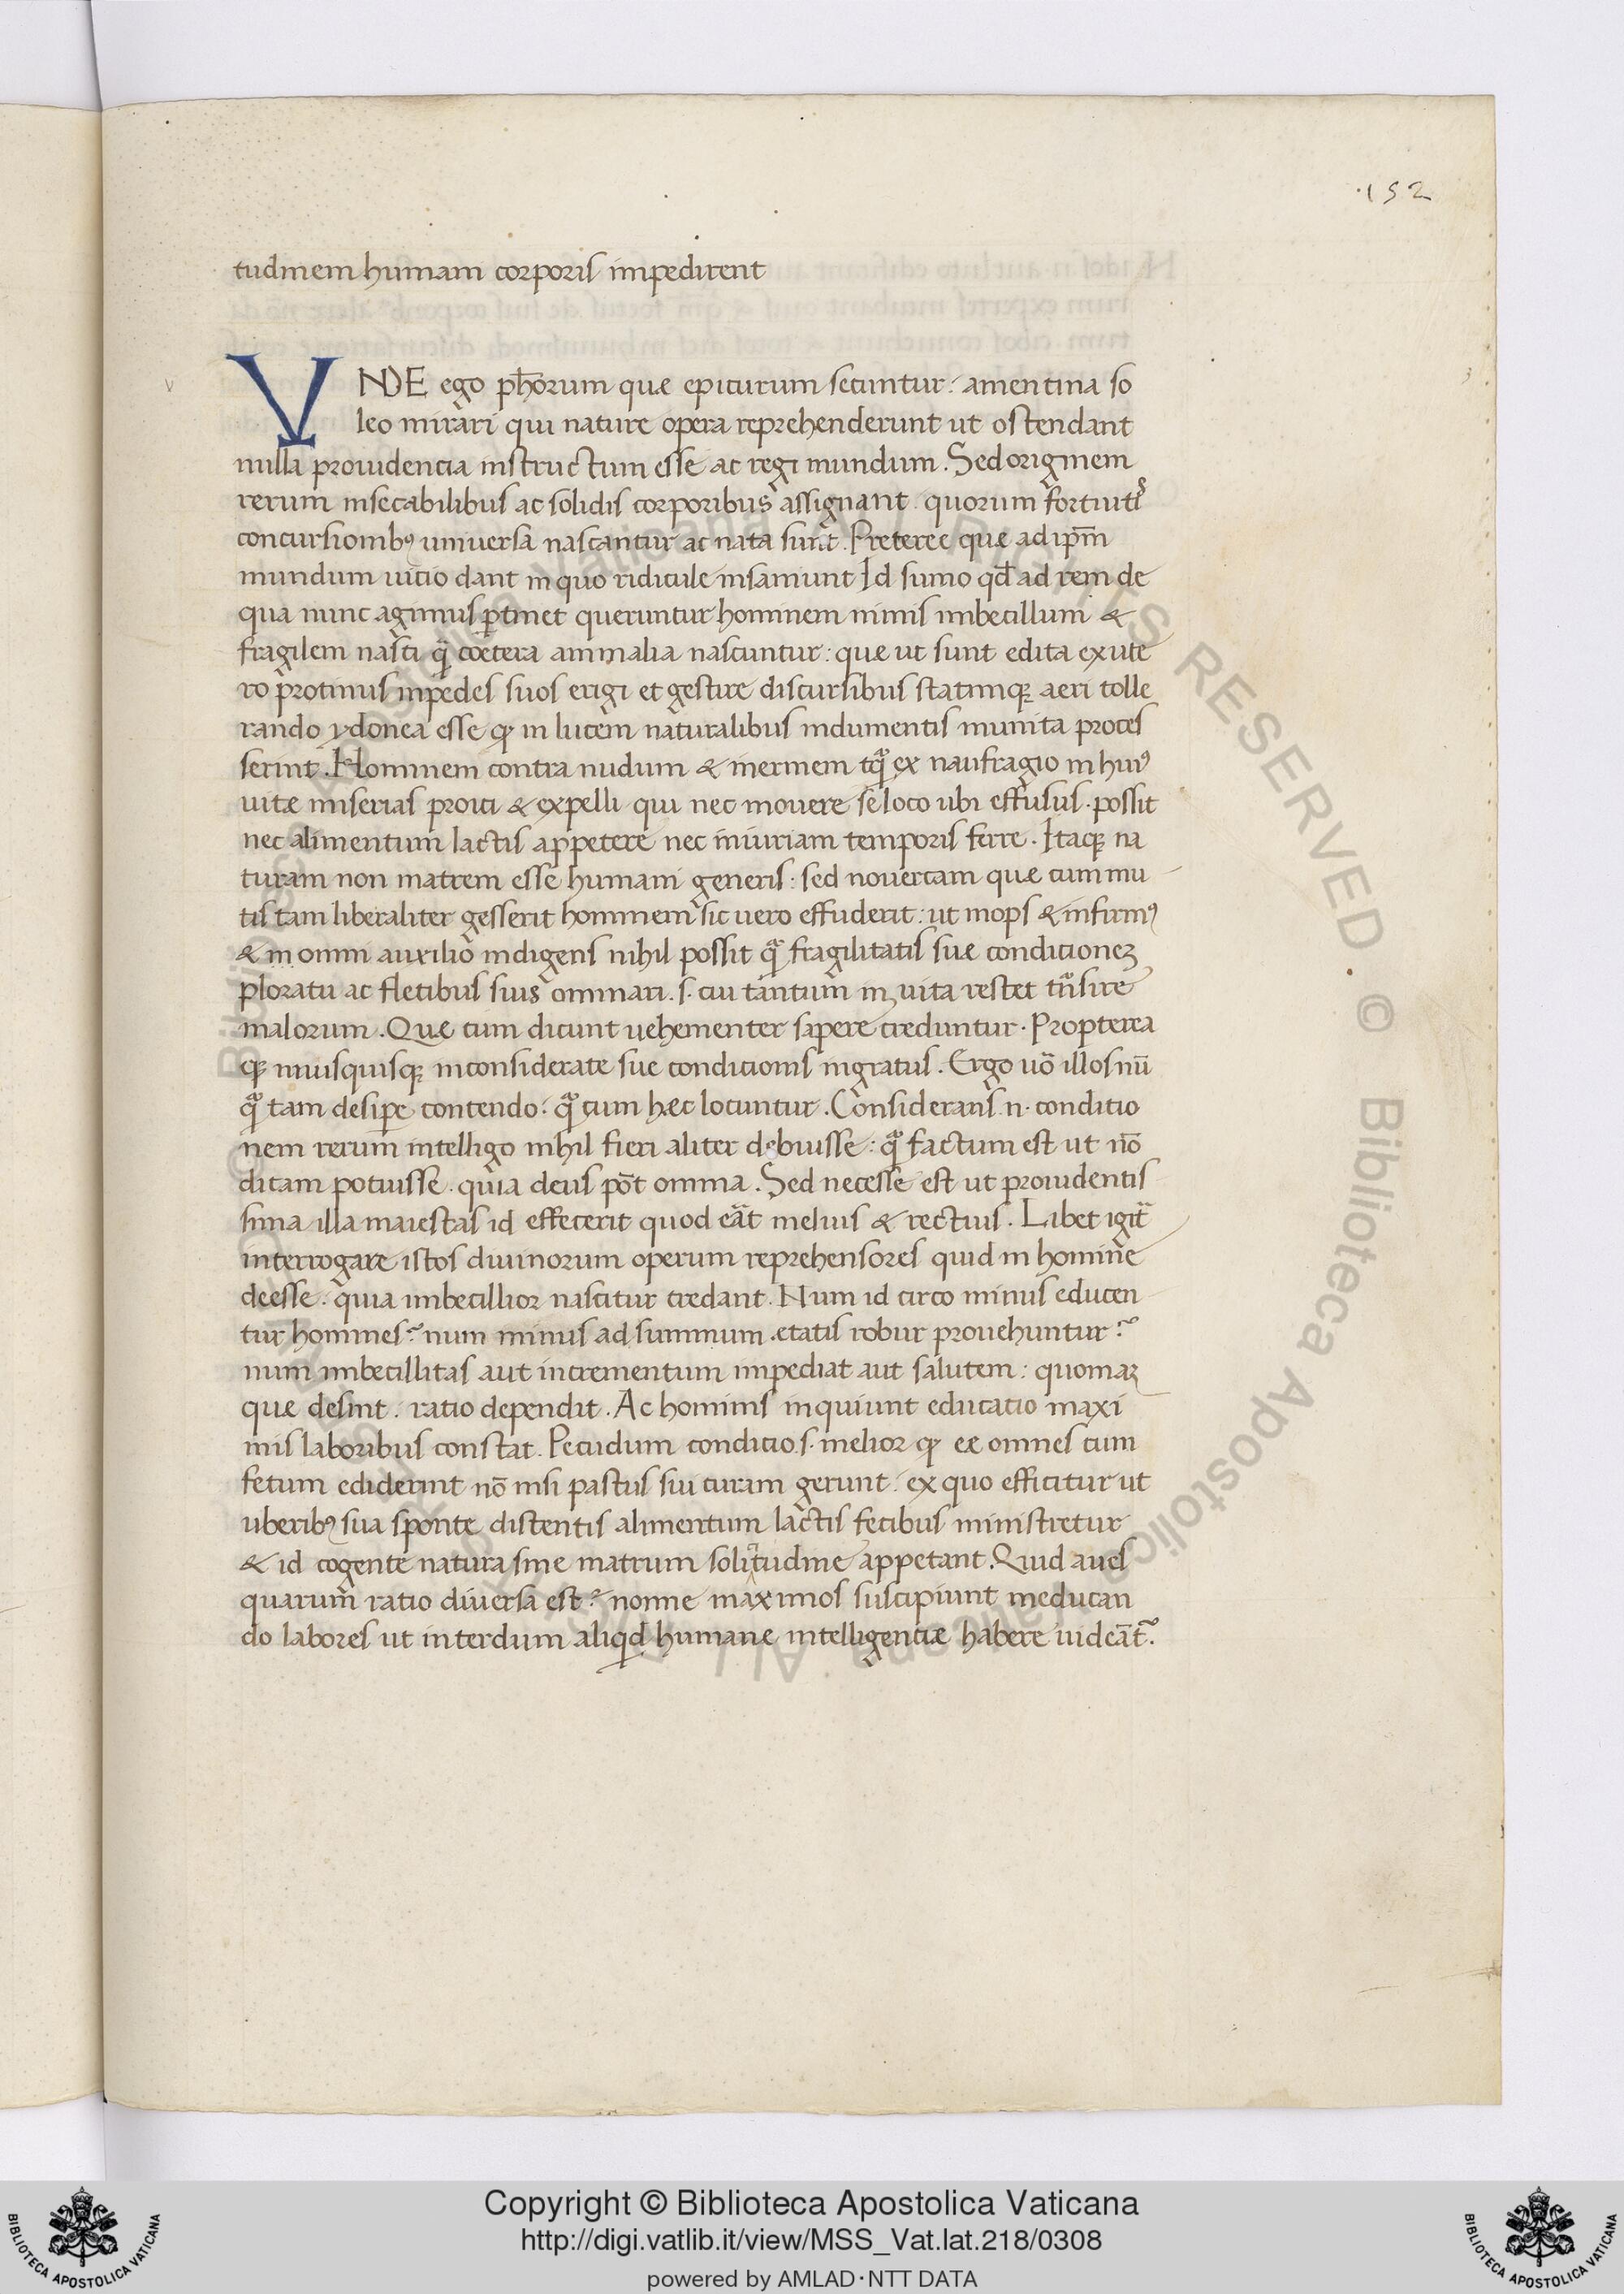 .152
tudinem humani corporis impedirent
VNDE ego ph̅orum quæ epicurum secuntur: amentina so
leo mirari qui nature opera reprehenderunt ut ostendant
nulla prouidencia instructum esse ac regi mundum. Sed originem
rerum insecabilibus ac solidis corporibus assignant quorum fortuitis
concursionibꝰ uniuersa nascantur ac nata sunt. Preteree que ad ip̅m
mundum uicio dant in quo ridicule insaniunt Id sumo qd̅ ad rem de
qua nunc agimus ꝑtinet queruntur hominem nimis imbecillum &
fragilem nasci q̃ coetera animalia nascuntur: que ut sunt edita ex ute
ro protinus in pedes suos erigi et gestire discursibus statimqꝫ aeri tolle
rando ydonea esse ꝙ in lucem naturalibus indumentis munita proces
serint. Hominem contra nudum & inermem tq̃ ex naufragio in huiꝰ
uitæ miserias proici & expelli qui nec mouere se loco ubi effusus. possit
nec alimentum lactis appetere nec iniuriam temporis ferre. Itaqꝫ na
turam non matrem esse humani generis: sed nouercam quæ cum mu
tis tam liberaliter gesserit hominem sic uero effuderit: ut inops & infirmꝰ
& in omni auxilio indigens nihil possit q̃ fragilitatis suæ condicioneꝫ
ploratu ac fletibus sius ominari. s. cui tantum in uita restet tn̄sire
malorum. Quæ cum dicunt uehementer sapere creduntur. Propterea
ꝙ unusquisqꝫ inconsiderate sue condicionis ingratus. Ergo uō illos nū
q̃ tam desiꝑe contendo: q̃ cum hæc locuntur. Considerans .n. conditio
nem rerum intelligo nihil fieri aliter debuisse: q̃ factum est ut nō
dicam potuisse. quia deus pōt omnia. Sed necesse est ut prouidentis
sima illa maiestas id effecerit quod eāt melius & rectius. Libet igit̃
interrogare istos diuinorum operum reprehensores quid in homine
deesse. quia imbecillior nascitur credant. Num id circo minus educen
tur homines? num minus ad summum .etatis robur prouehuntur?
num imbecillitas aut incrementum impediat aut salutem: quoniaꝫ
que desint. ratio dependit. Ac hominis inquiunt educatio maxi
mis laboribus constat. Pecudum condicio .s. melior ꝙ ee omnes cum
fetum ediderint nō nisi pastus sui curam gerunt. ex quo efficitur ut
uberibꝰ sua sponte distentis alimentum lactis fetibus ministretur
& id cogente natura sine matrum solicitudine appetant. Quid aues
quarum ratio diuersa est? nonne maximos suscipiunt in educan
do labores ut interdum aliqd̅ humane intelligenciæ habere uideāt?
Copyright © Biblioteca Apostolica Vaticana
http://digi.vatlib.it/view/MSS_Vat.lat.218/0308
powered by AMLAD·NTT DATA